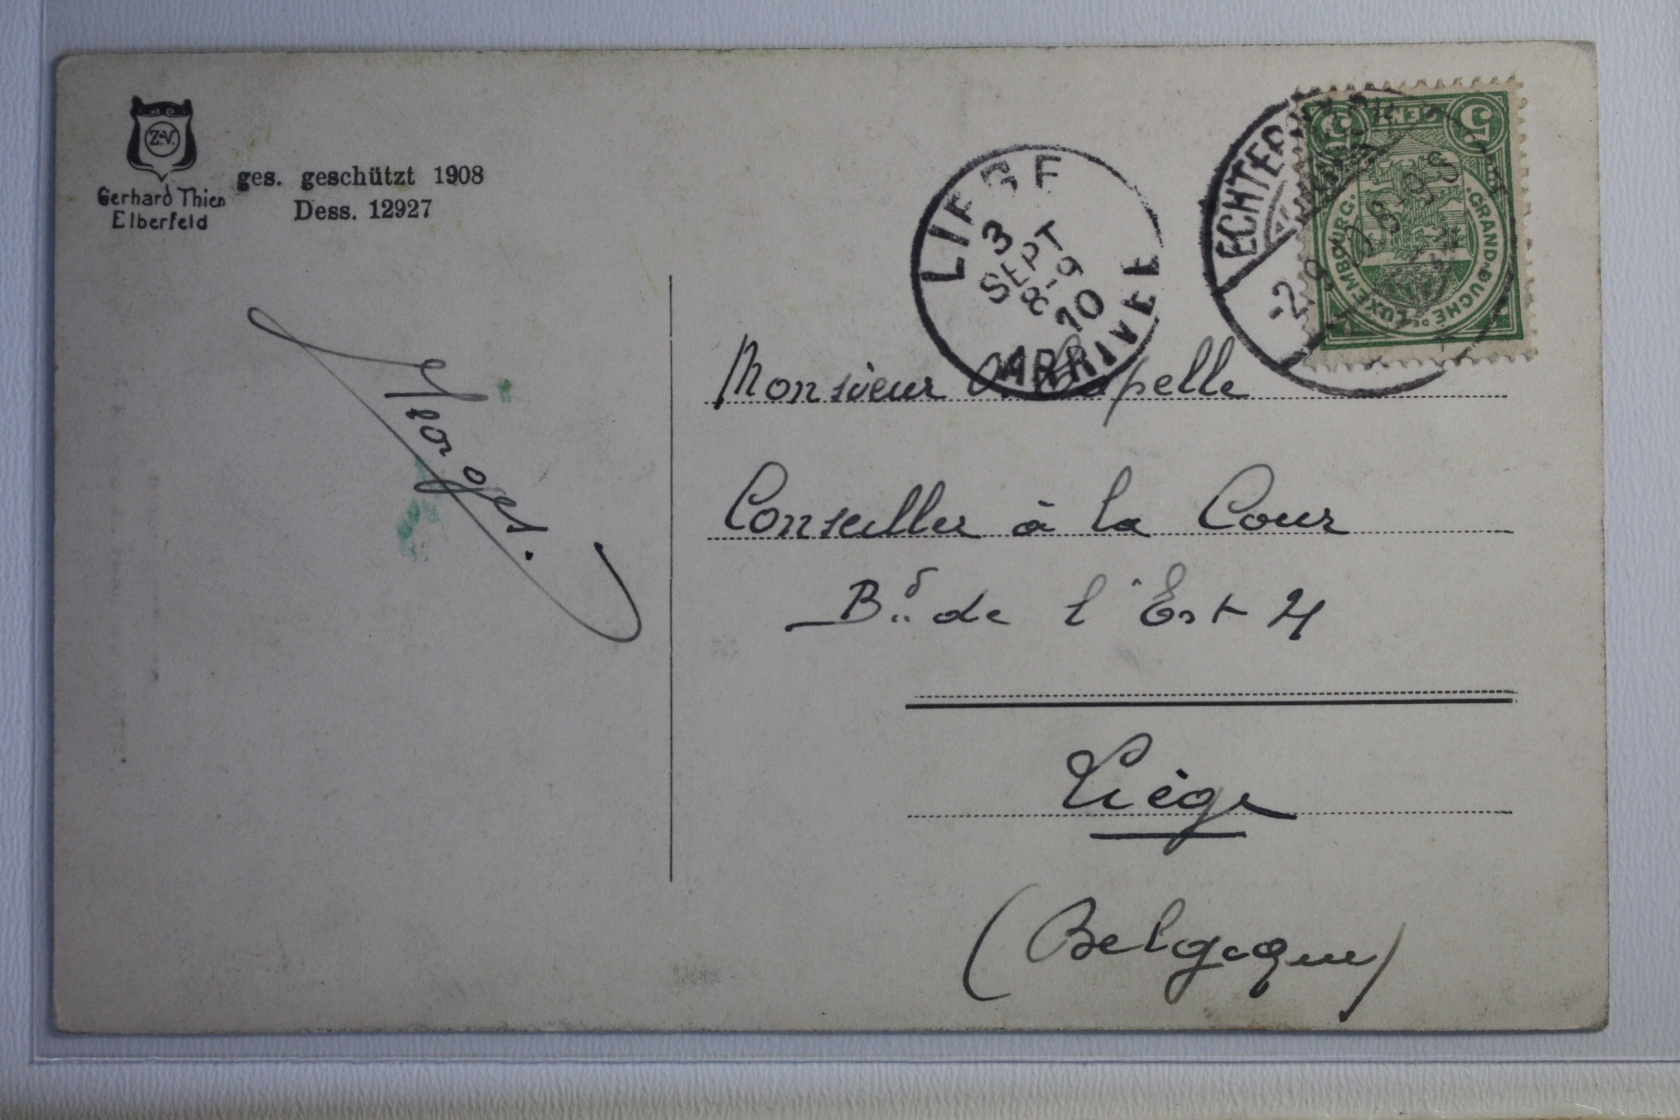 Z.V.
Gerhard Thien
Elberfeld
ges. geschützt 1908
Dess. 12927
Georges.
LIEGE
3
SEPT
8-9
10
ARRIVEE
ECHTERNACH
-2.9
5 CENT 5
GRAND-DUCHÉ DE LUXEMBOURG.
Monsieur Capelle
Conseiller à la Cour
Bd. de l'Est 4
Liège
(Belgique)